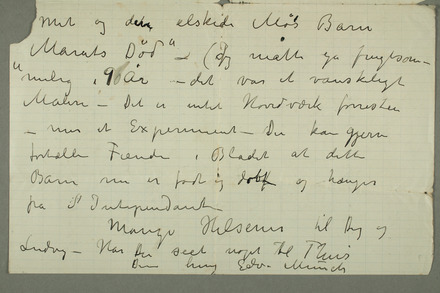 mit og den elskede Møs Barn
Marats Død" – (Jeg måtte gå frugtsom-
melig i 9 År – det var et vanskeligt
Maleri – Det er intet Hovedværk forresten
– mer et Experiment – Du kan gjerne
fortælle Fienden i Bladet at dette
Barn nu er født og døbt og hænger
på l'Independants
Mange Hilsener til Dig og
Ludvig – Har Du seet noget til Thiis
Din heng Edv. Munch